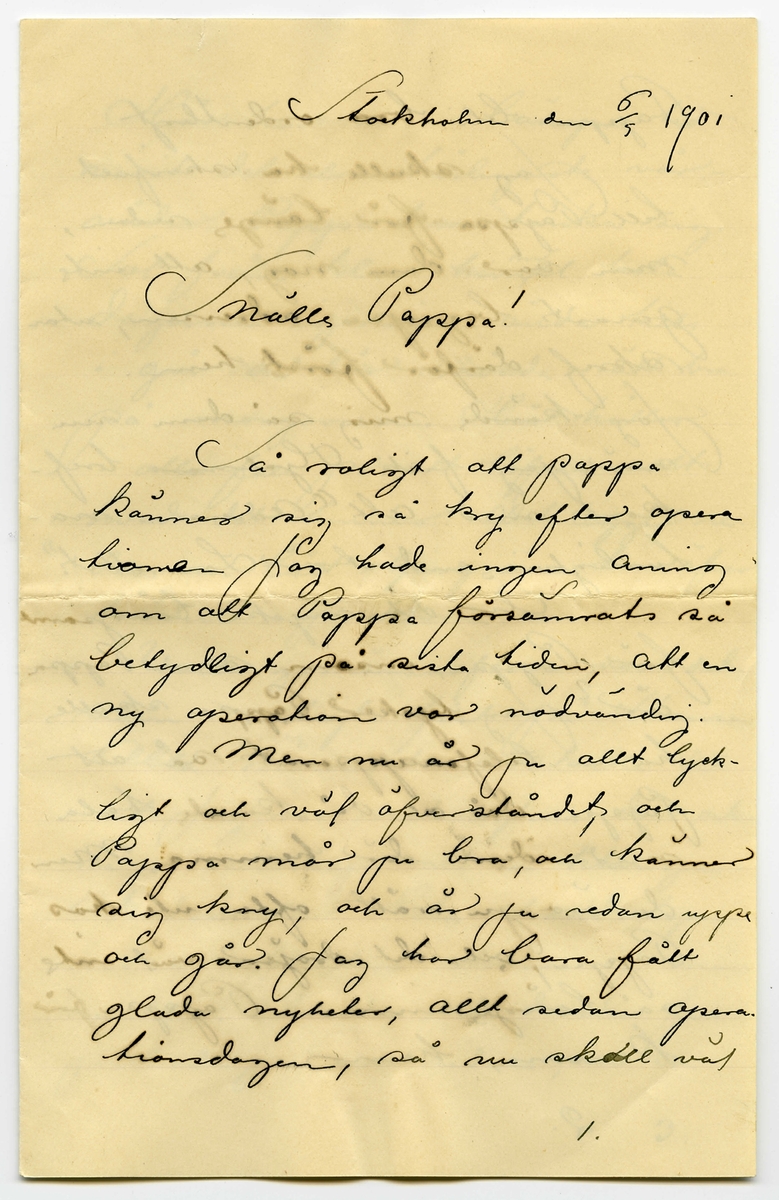 Stockholm den 6/5 1901
Snälle Pappa!
Så roligt att pappa
känner sig så kry efter opera
tionen Jag hade ingen aning
om att Pappa försämrats så
betydligt på sista tiden, att en
ny operation var nödvändig.
Men nu är ju allt lyck-
ligt och väl öfverståndet, och
Pappa mår ju bra, och känner
sig kry, och är ju redan uppe
och går. Jag har bara fått
glada nyheter, allt sedan opera-
tionsdagen, så nu skall väl
1.